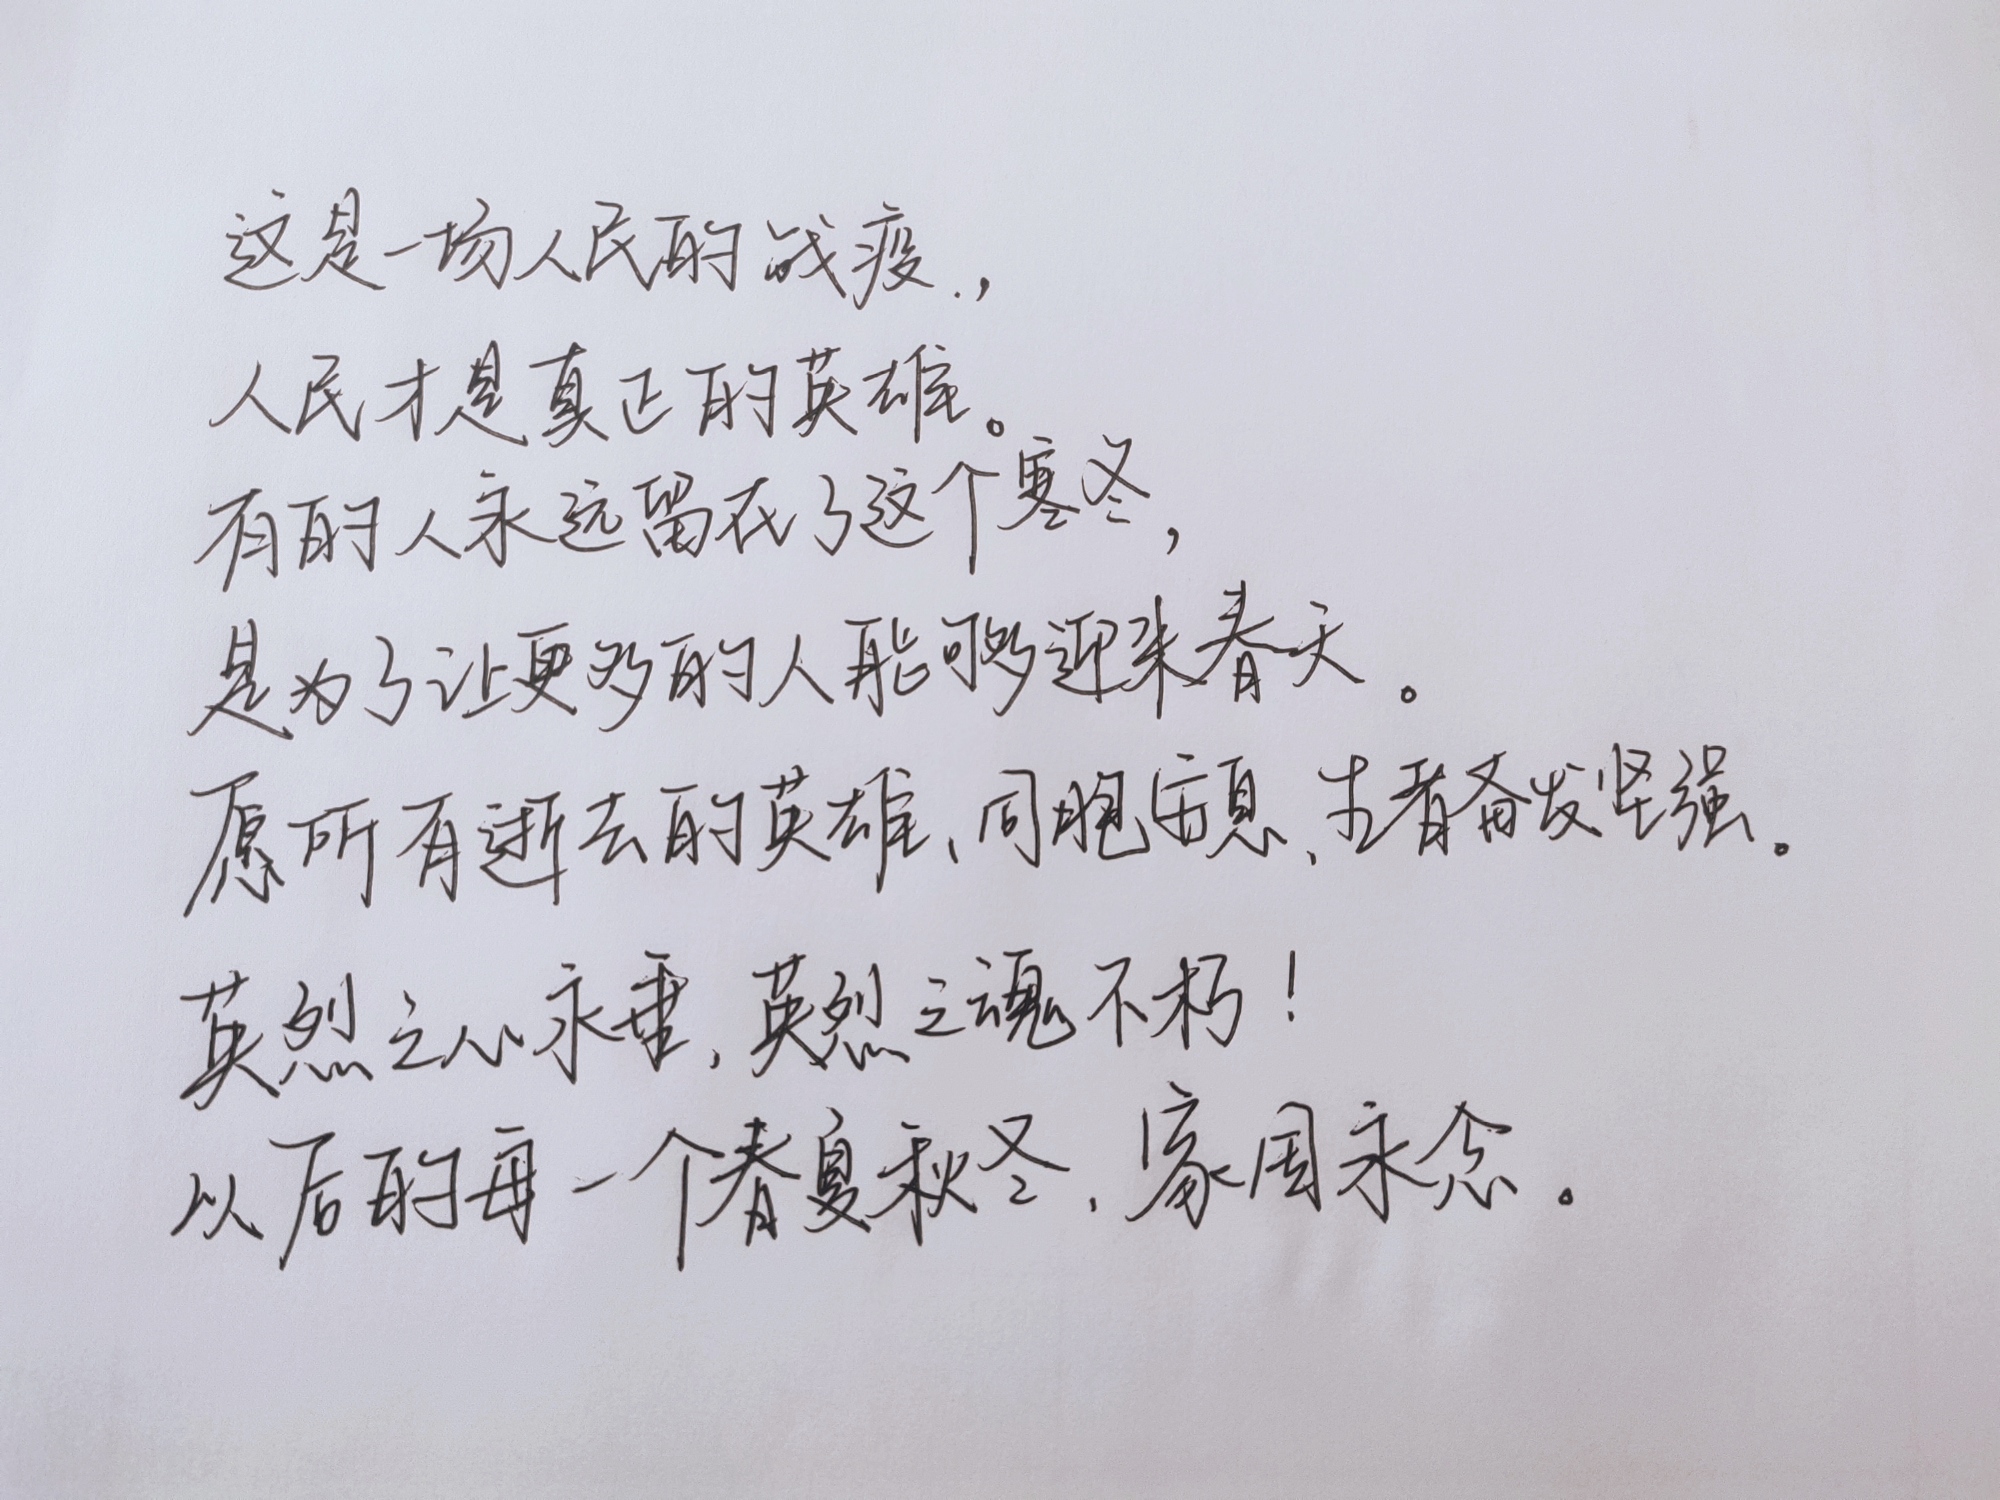 这是一场人民的战疫.，
人民才是真正的英雄。
有的人永远留在了这个寒冬，
是为了让更多的人能够迎来春天。
愿所有逝去的英雄、同胞安息、生者奋发坚强。
英烈之心永垂、英烈之魂不朽！
以后的每一个春夏秋冬、家国永念。